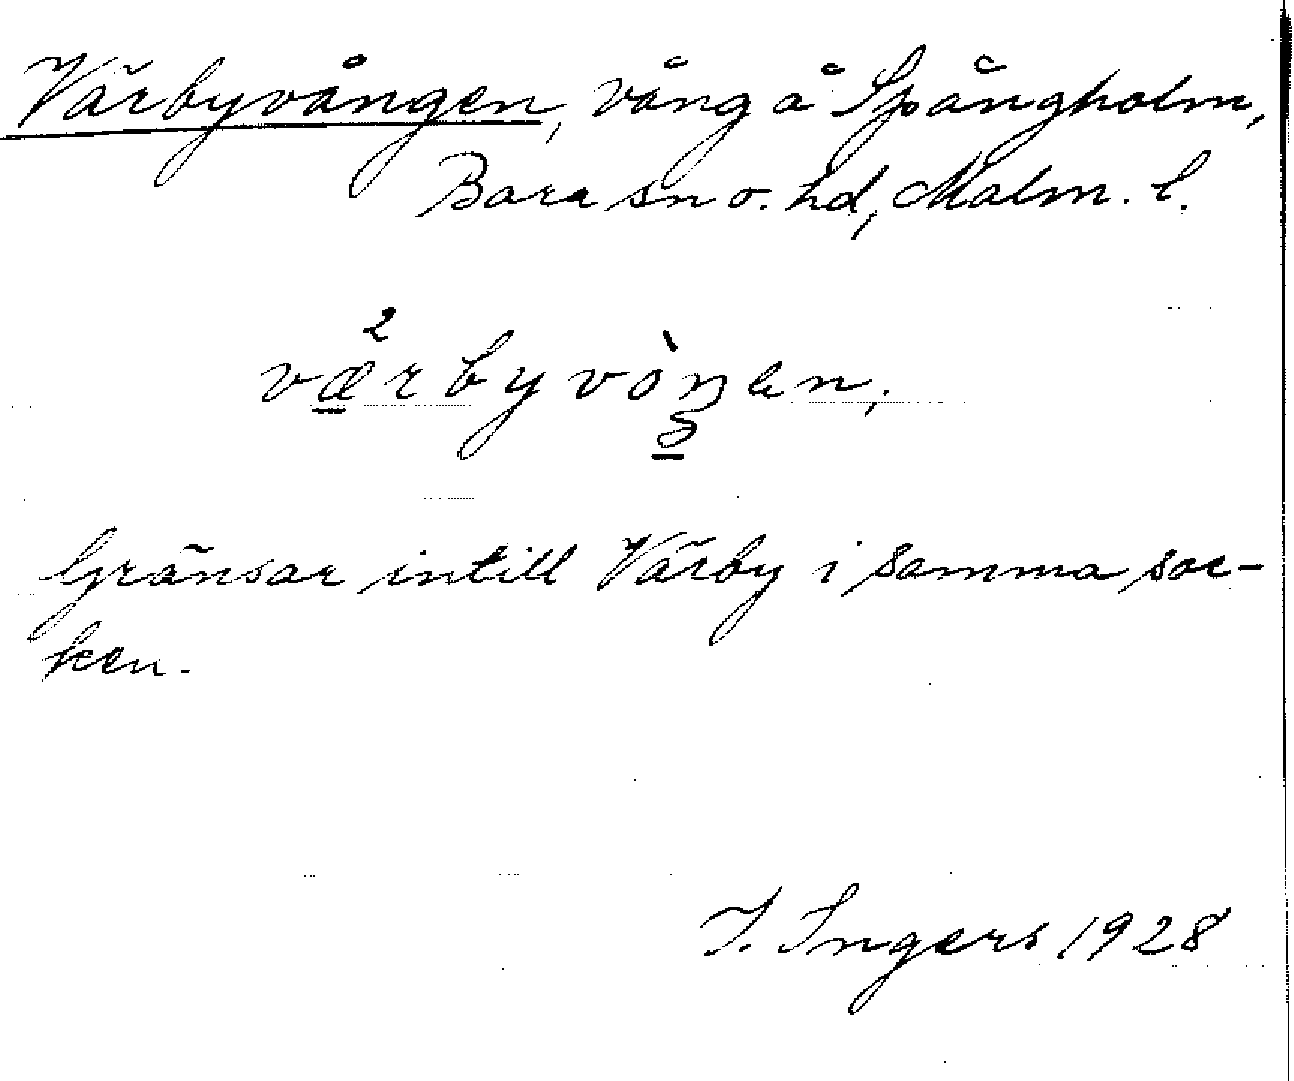 Värbyvången, vång å Spångholm,
Bara sn o. hd, Malm. l.
væ²rbyvòŋen,
Gränsar intill Värby i samma soc-
ken.
I. Ingers 1928